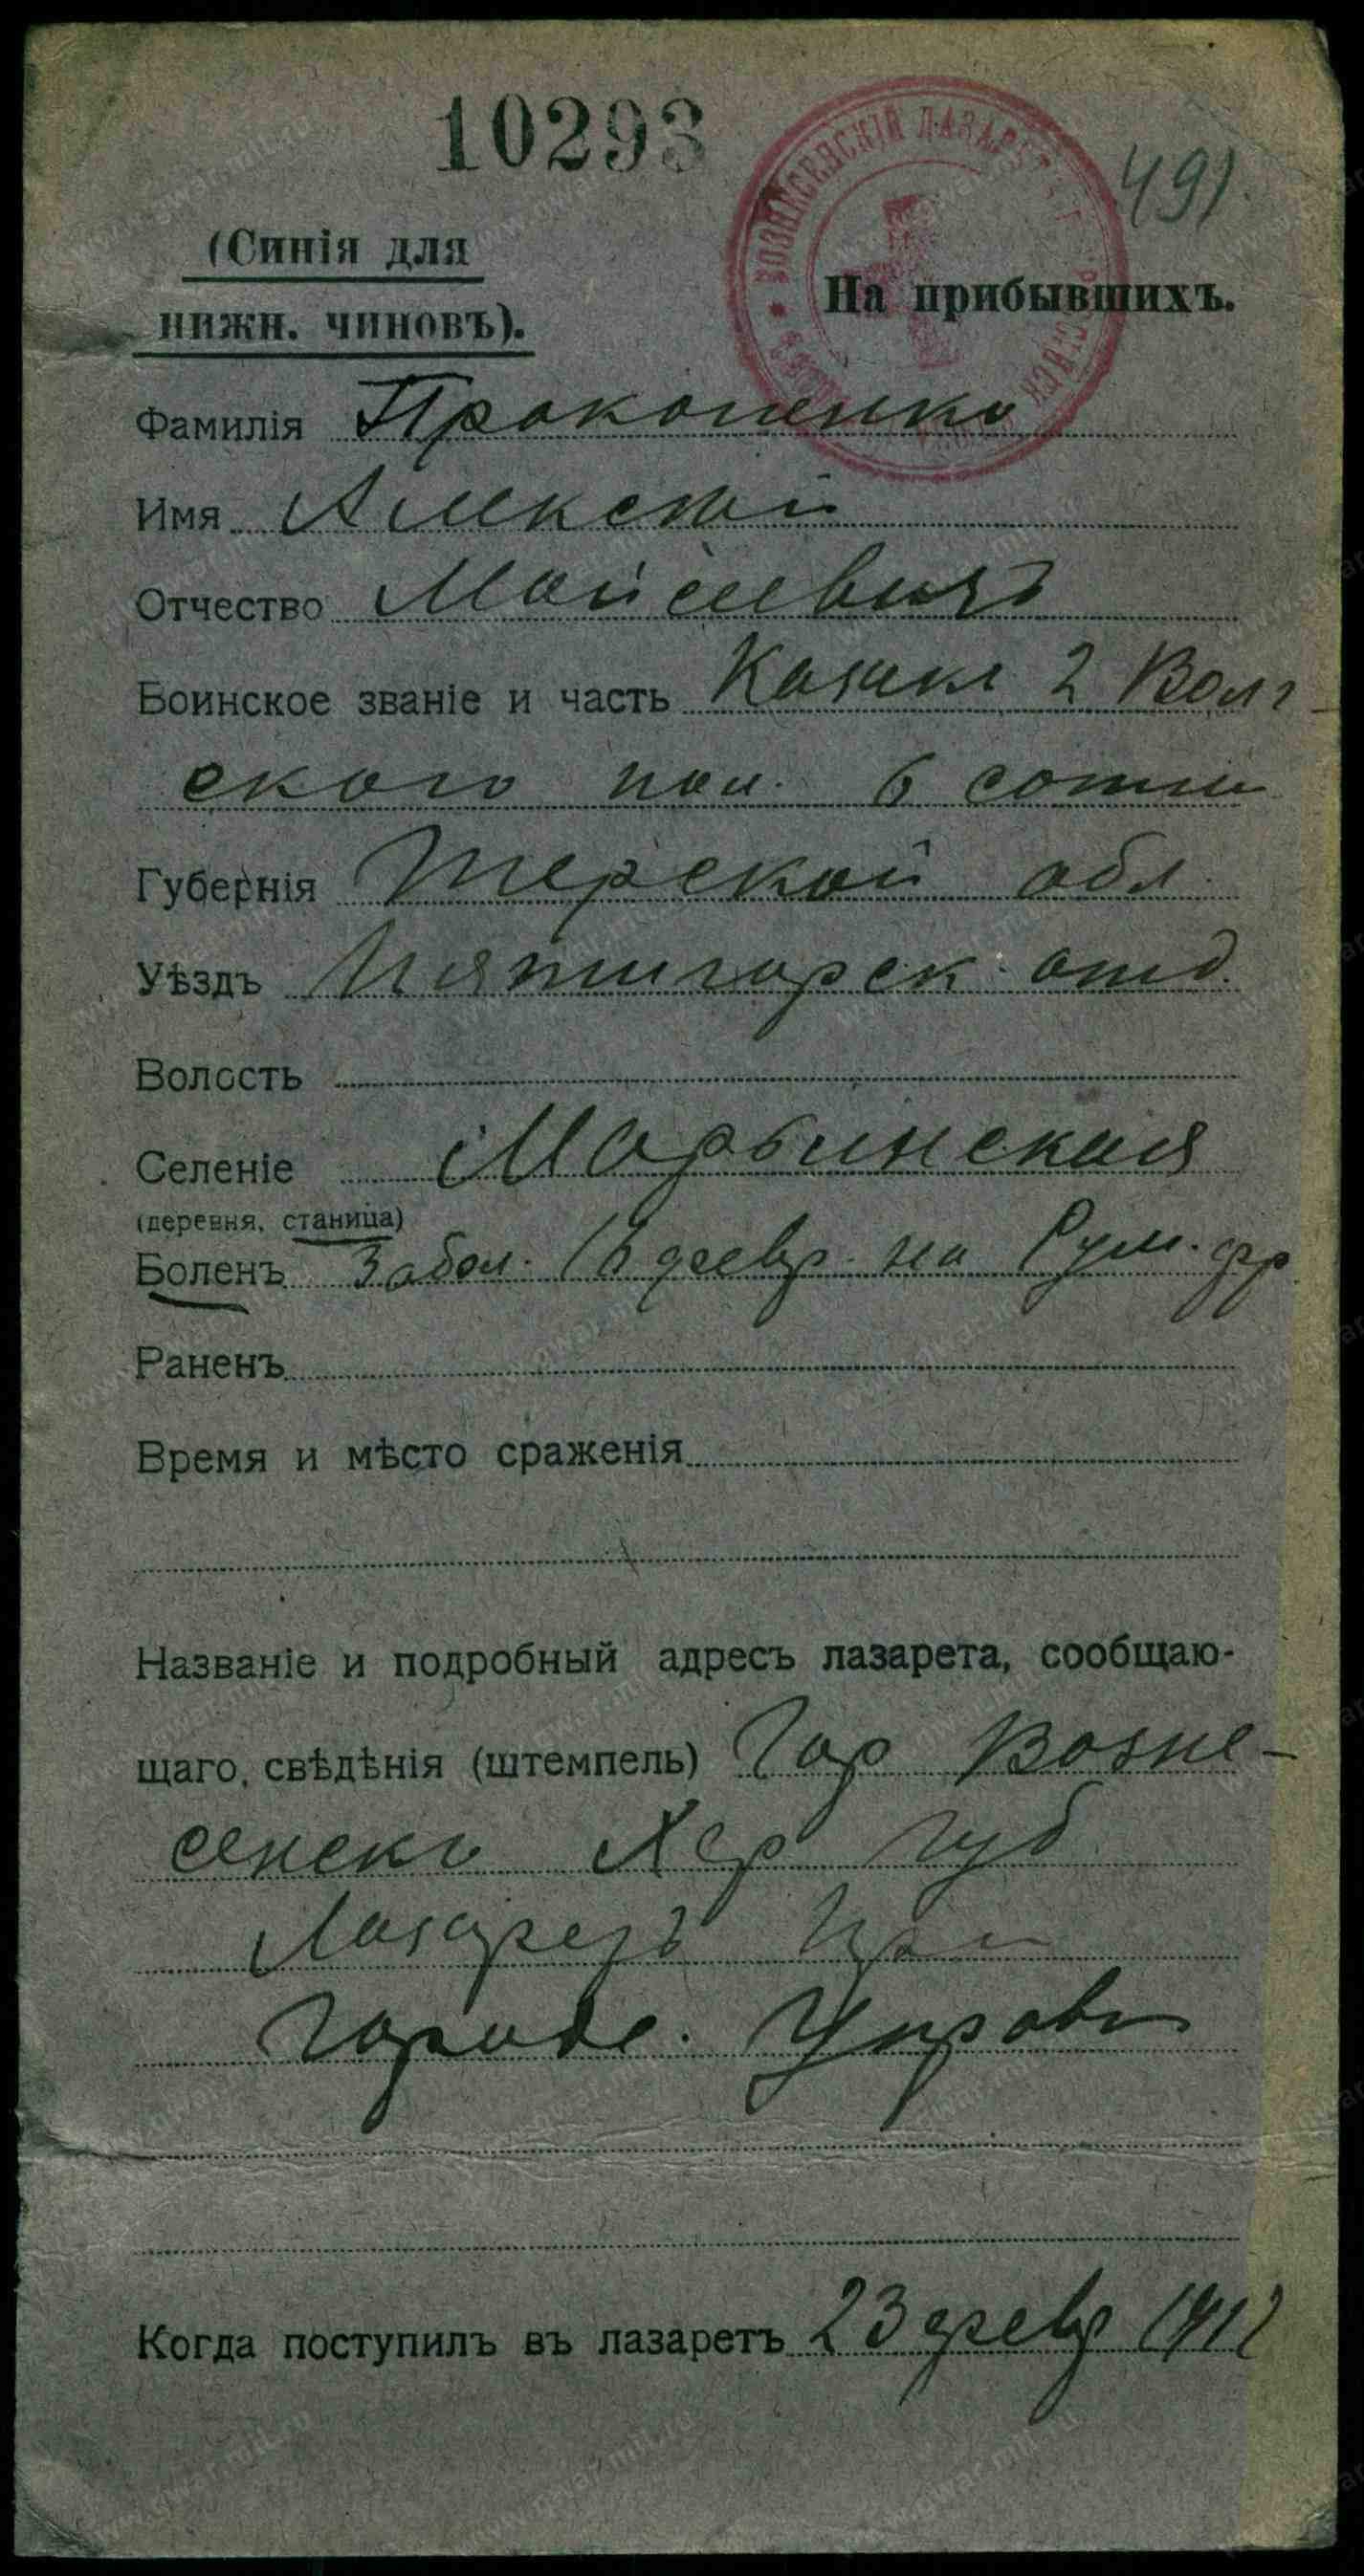 10293
491
(Синія для
нижн. чиновъ).
ВОЗНЕСЕНСКІЙ ЛАЗАРЕТЪ
На прибывшихъ.
Фамилія Прокопенко
Имя Алексѣй
Отчество Мойсеевичъ
Воинское званіе и часть Казакъ 2 Волг-
скаго пол. 6 сотни
Губернія Терской обл.
Уѣздъ Пятигорск. отд.
Волость
Селеніе Марьинская
(деревня, станица)
Боленъ Забол. 16 февр. на Рум. фр
Раненъ
Время и мѣсто сраженія
Названіе и подробный адресъ лазарета, сообщаю-
щаго, свѣдѣнія (штемпель) Гор Возне-
сенскъ Хер губ
Лазаретъ при
Городс. Управѣ
Когда поступилъ въ лазаретъ 23 февр 1917
www.gwar.mil.ru